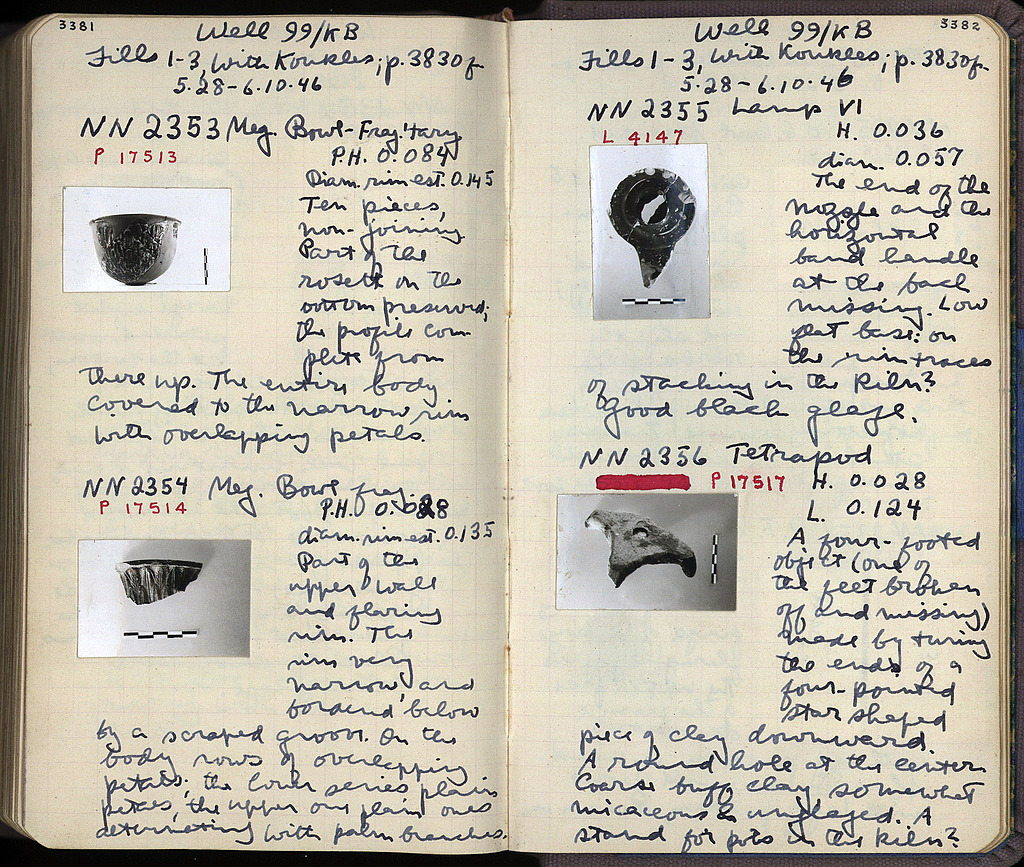 3381
Well 99/KB
Fills 1-3, with Koukles; p. 3830 f.
5.28-6.10.46
NN 2353 Meg. Bowl-Frag'tary
P 17513
P.H. 0.084
Diam. rim est. 0.145
Ten pieces,
non-joining
Part of the
rosett on the
bottom preserved;
the profile com
plete from
there up. The entire body
covered to the narrow rim
with overlapping petals.
NN 2354 Meg. Bowl frag.
P 17514
P.H. 0.
diam. rim est. 0.135
Part of the
upper wall
and flaring
rim. The
rim very
narrow, and
bordered below
by a scraped groove. On the
body rows of overlapping
petals; the lower series plain
petals, the upper one plain ones
alternating with palm branches.
3382
Well 99/KB
Fills 1-3, with Koukles; p. 3830 f.
5.28-6.10.46
NN 2355 Lamp VI
L 4147
H. 0.036
diam. 0.057
The end of the
nozzle and the
horizontal
band handle
at the back
missing. Low
flat base: on
the rim traces
of stacking in the kiln?
Good black glaze.
NN 2356 Tetrapod
P 17517
H. 0.028
L. 0.124
A four-footed
object (one of
the feet broken
off and missing)
made by turing
the ends of a
four-pointed
star shaped
piece of clay downward.
A round hole at the center
Coarse buff clay somewhat
micaceous & unglazed. A
stand for pots in the kiln?